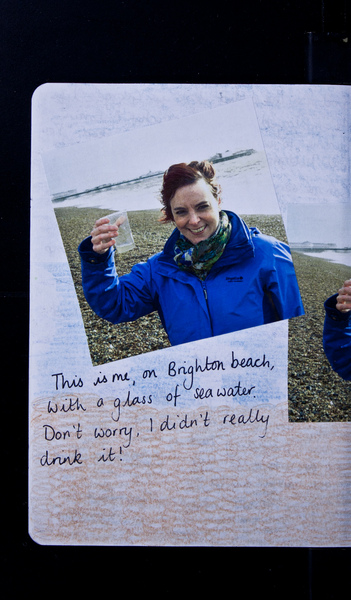 This is me, on Brighton beach,
with a glass of sea water.
Don't worry, I didn't really
drink it!